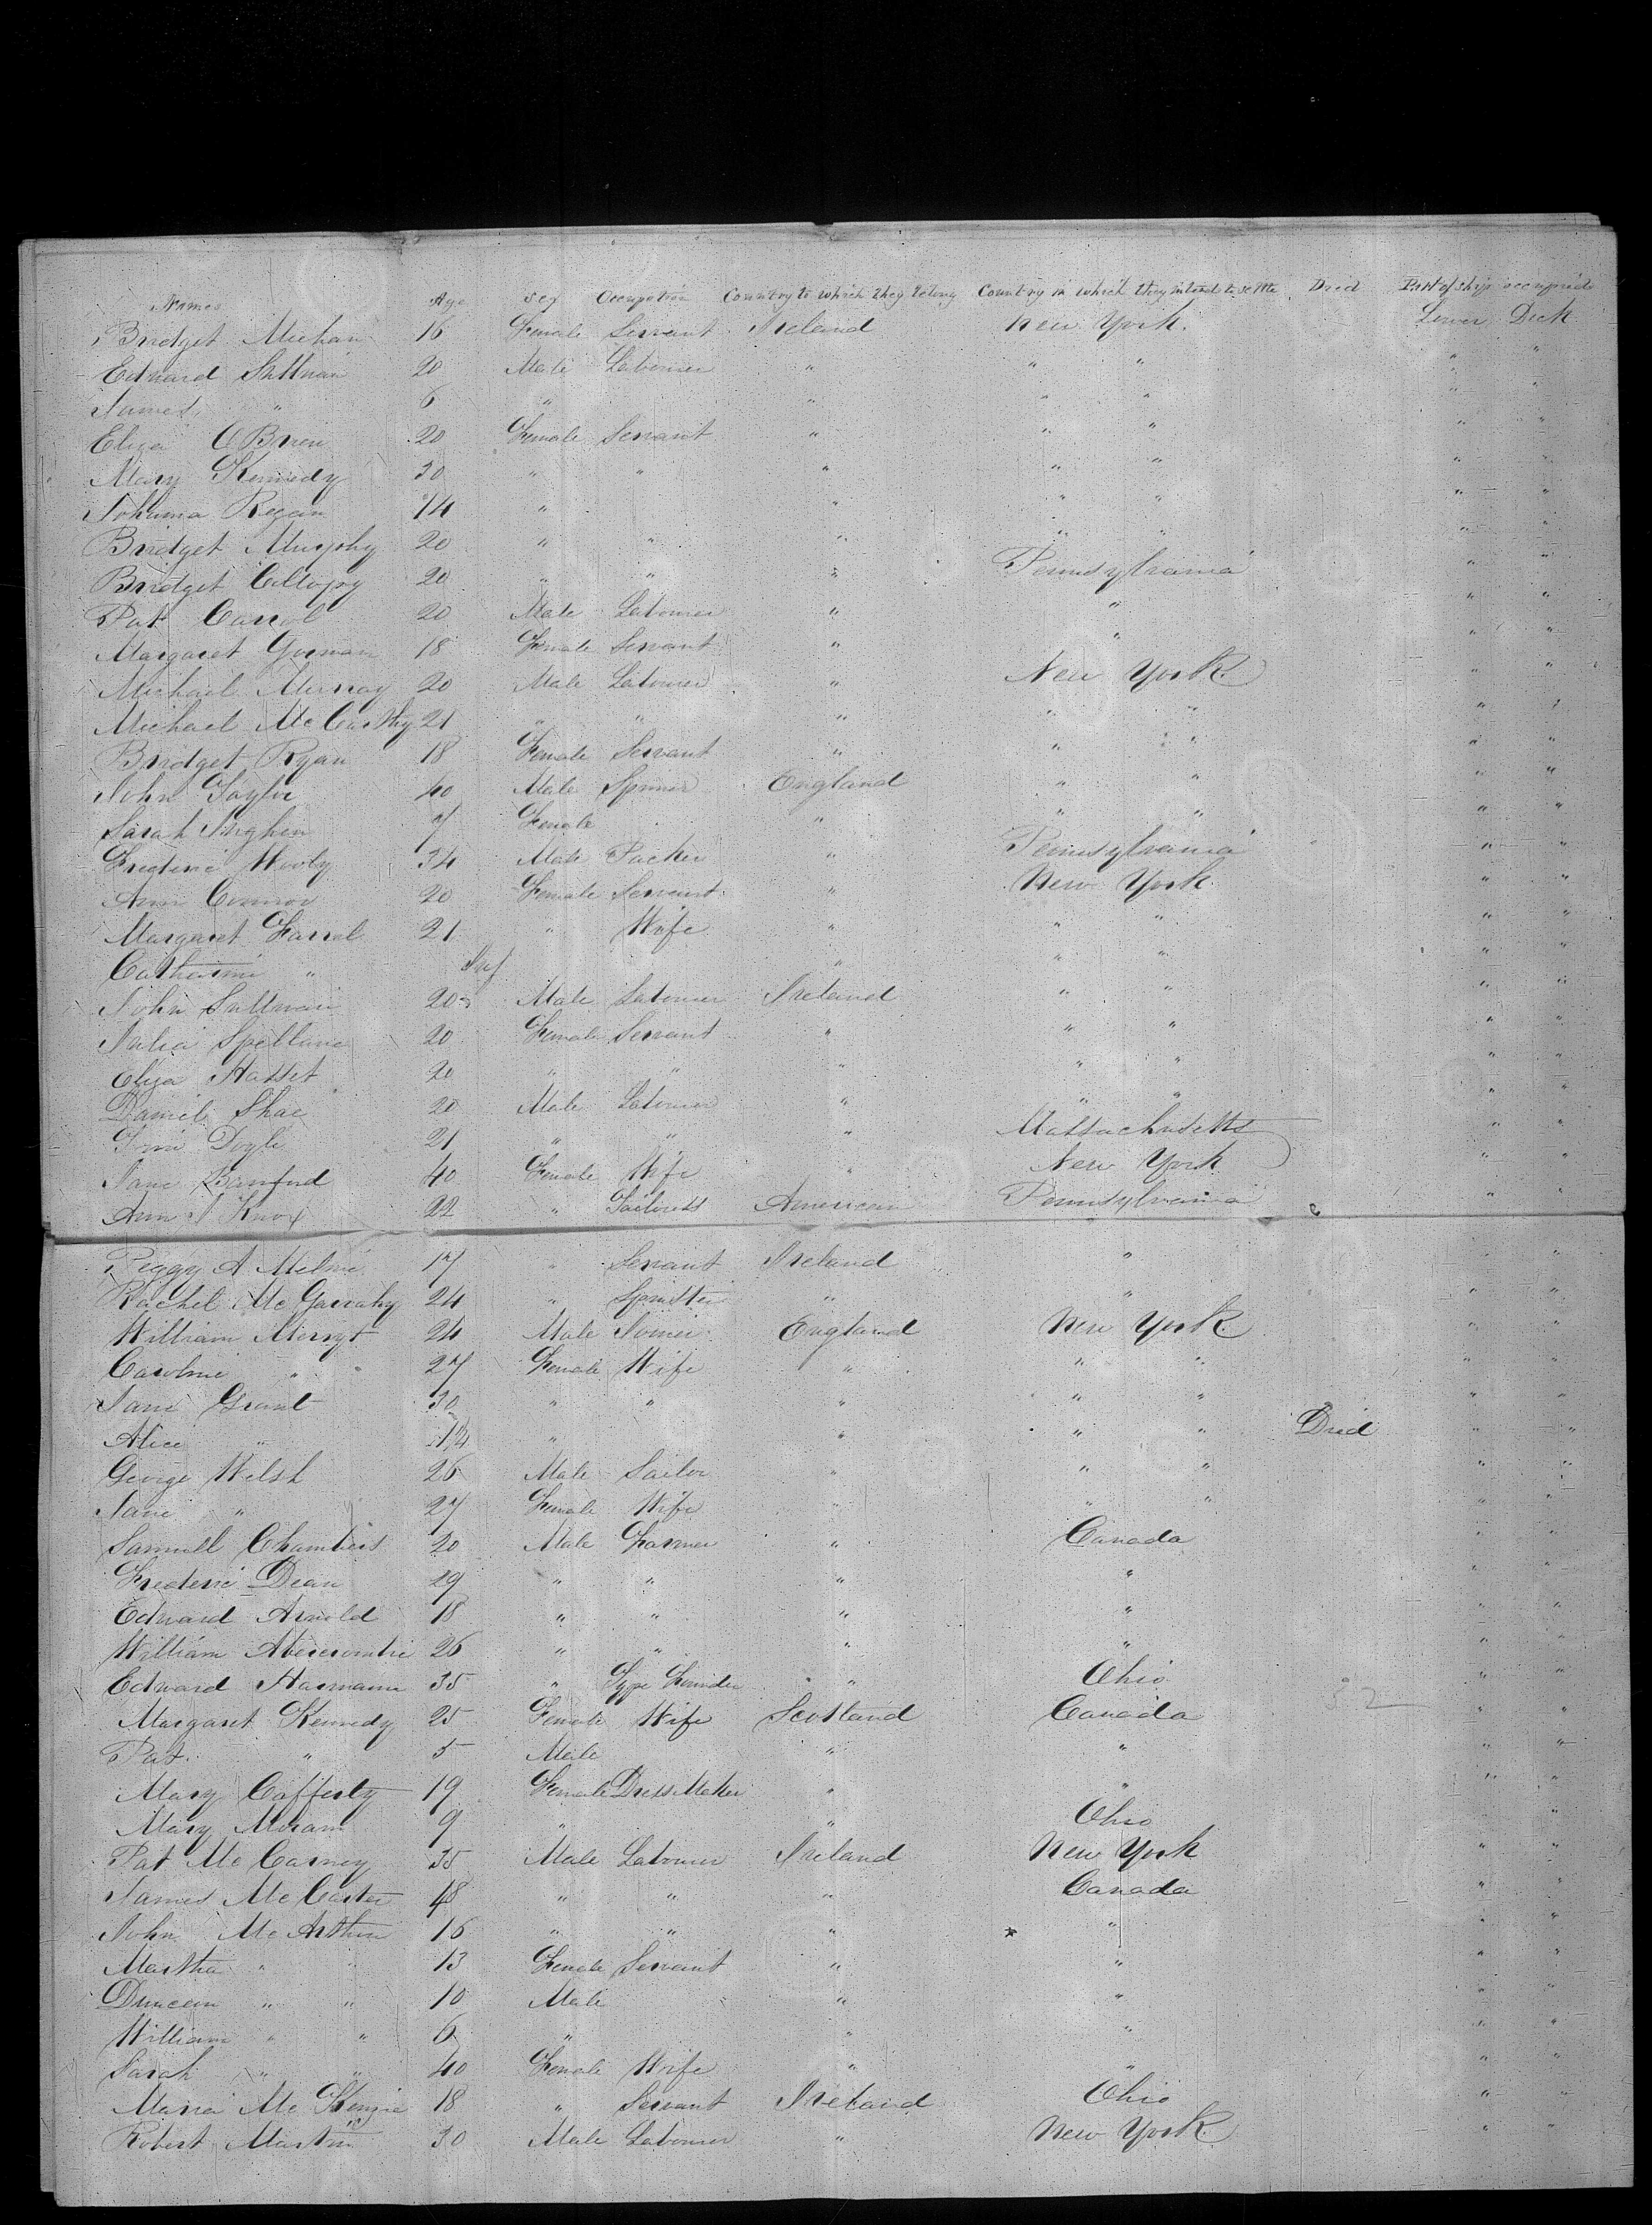 Names Age Sex Occupation Country to which they belong Country in which they intend to settle Died Part of ship occupied
Bridget Meehan 16 Female Servant Ireland New York. Lower Deck
Edward Sullivan 20 Male Labourer " " " " "
James " 6 " " " " " "
Eliza O'Brien 20 Female Servant " " " " "
Mary Kennedy 30 " " " " " " "
Johanna Regan 14 " " " " " "
Bridget Murphy 20 " " " " " " "
Bridget 20 " " " Pennsylvania " "
Pat Carrol 20 Male Labourer " " " "
Margaret Gorman 18 Female Servant " " " "
Michael Murray 20 Male Labourer " New York " "
Michael McCarthy 21 " " " " " " "
Bridget Ryan 18 Female Servant " " " " "
John Taylor 40 Male Spinner England " " " "
Sarah 7 Female " " " " "
Frederic 34 Male Packer " Pennsylvania " "
Ann Connor 20 Female Servant " New York " "
Margaret Farrel 21 " Wife " " " " "
Catharine " Inf " " " " "
John Sullivan 20 Male Labourer Ireland " " " "
Julia Spellane 20 Female Servant " " " " "
Eliza Hasset 20 " " " " " " "
Daniel Shae 20 Male Labourer " " " " "
Doyle 21 " " " Massachusetts " "
Jane 40 Female Wife " New York " "
Ann J Knox 22 " Tailoress American Pennsylvania " "
Peggy A 17 " Servant Ireland " " "
Rachel McGarrahy 24 " Spinster " " " "
William 24 Male Joiner England New York " "
Caroline " 27 Female Wife " " " " "
Jane Grant 30 " " " " " " "
Alice " " " " " Died " "
George Welsh 26 Male Sailor " " " " "
Jane " 27 Female Wife " " " " "
Samuell Chambers 20 Male Farmer " Canada " "
Frederic Dean 29 " " " " " "
Edward Arnold 18 " " " " " "
William Abercrombie 26 " " " " " "
Edward Harmann 35 " Type Founder " Ohio " "
Margaret Kennedy 25 Female Wife Scotland Canada " "
Pat " 5 Male " " " "
Mary Cafferty 19 Female Dress Maker " " " "
Mary 9 " " Ohio " "
Pat McCarney 35 Male Labourer Ireland New York " "
James McCarter 48 " " " Canada " "
John McArthur 16 " " " " " "
Martha " " 13 Female Servant " " " "
Duncan " " 10 Male " " " "
William " " 6 " " " " "
Sarah " " 40 Female Wife " " " "
Maria McKenzie 18 " Servant Ireland Ohio " "
Robert Martin 30 Male Labourer " New York " "